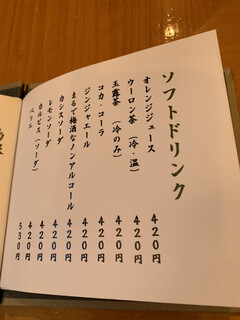 ソフトドリンク
オレンジジュース 420円
ウーロン茶 (冷・温) 420円
玉露茶 (冷のみ) 420円
コカ・コーラ 420円
ジンジャエール 420円
まるで梅酒なノンアルコール 420円
カシスソーダ 420円
レモンソーダ 420円
カルピス(ソーダ) 420円
ペリエ 530円